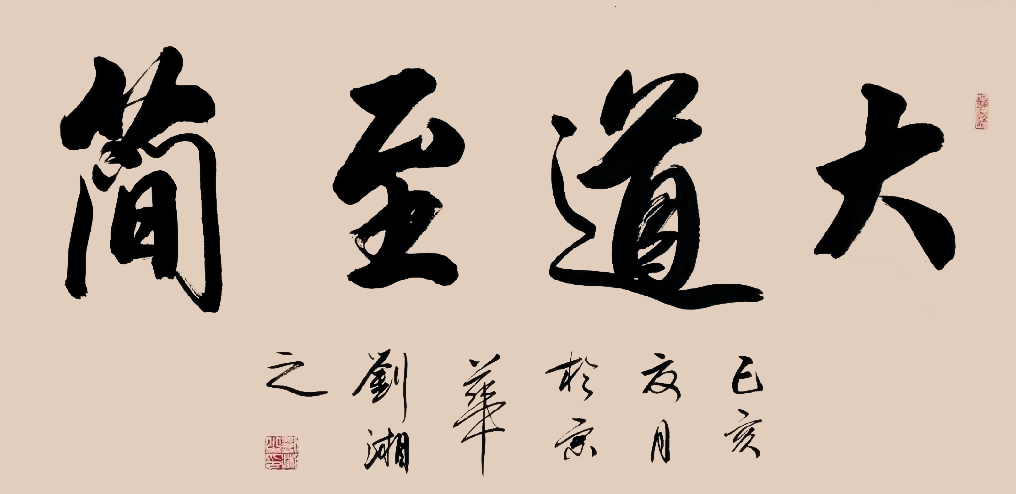 大道至简
己亥
夏月
於京
華
劉湘
之